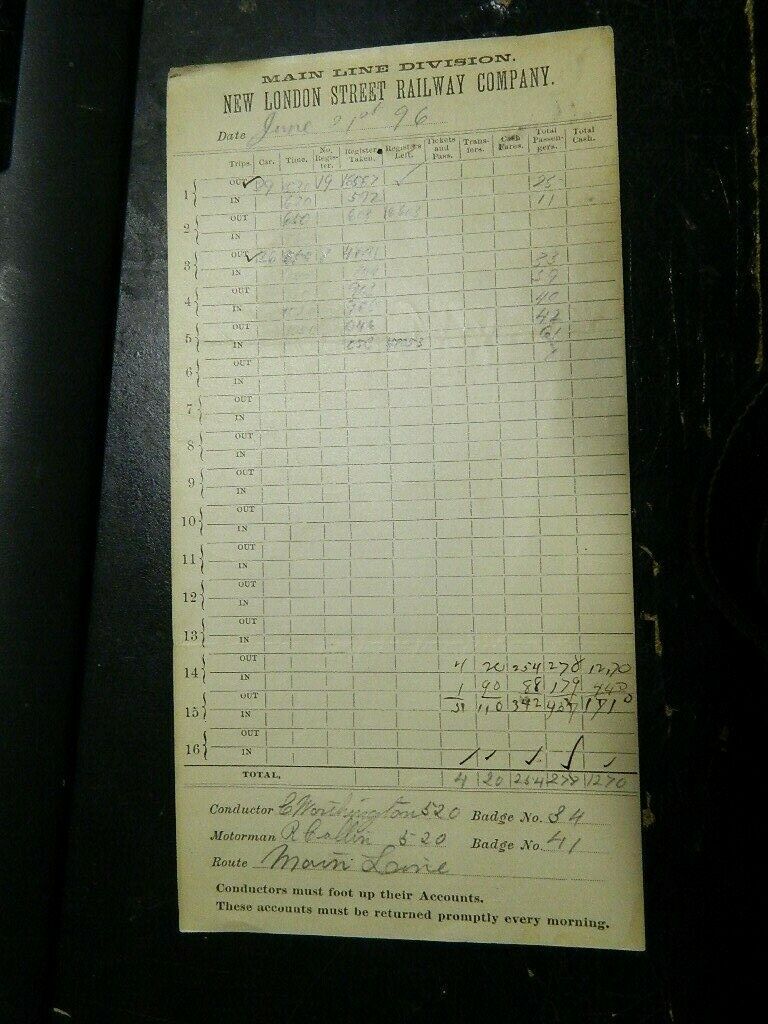 MAIN LINE DIVISION.
NEW LONDON STREET RAILWAY COMPANY.
Date June 21st 96
Trips. Car. Time. No. Register. Register Taken. Registers Left. Tickets and Pass. Transfers. Cash Fares. Total Passengers. Total Cash.
1 OUT 19
IN 592 11
2 OUT
IN
3 OUT
IN 59
4 OUT 40
IN 42
5 OUT 61
IN
6 OUT
IN
7 OUT
IN
8 OUT
IN
9 OUT
IN
10 OUT
IN
11 OUT
IN
12 OUT
IN
13 OUT
IN
14 OUT 4 20 254 278 12,70
IN 1 90 88 179 440
15 OUT 110 342
IN
16 OUT
IN
TOTAL, 4 20 254 278 1270
Conductor C Worthington 520 Badge No. 34
Motorman R Collin 520 Badge No. 41
Route Main Line
Conductors must foot up their Accounts.
These accounts must be returned promptly every morning.